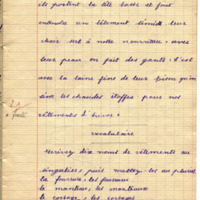 ils portent la tête basse et font
entendre un bêlement timide leur
chair sert à notre nourriture avec
leur peau on fait des gants c'est
avec la laine fine de leur toison qu'on
tisse les chaudes étoffes pour nos
vêtements d'hiver.
vocabulaire
écrivez dix noms de vêtements au
singulier, puis mettez-les au pluriel
la fourrure, les fourrures
le manteau, les manteaux
le corsage, les corsages